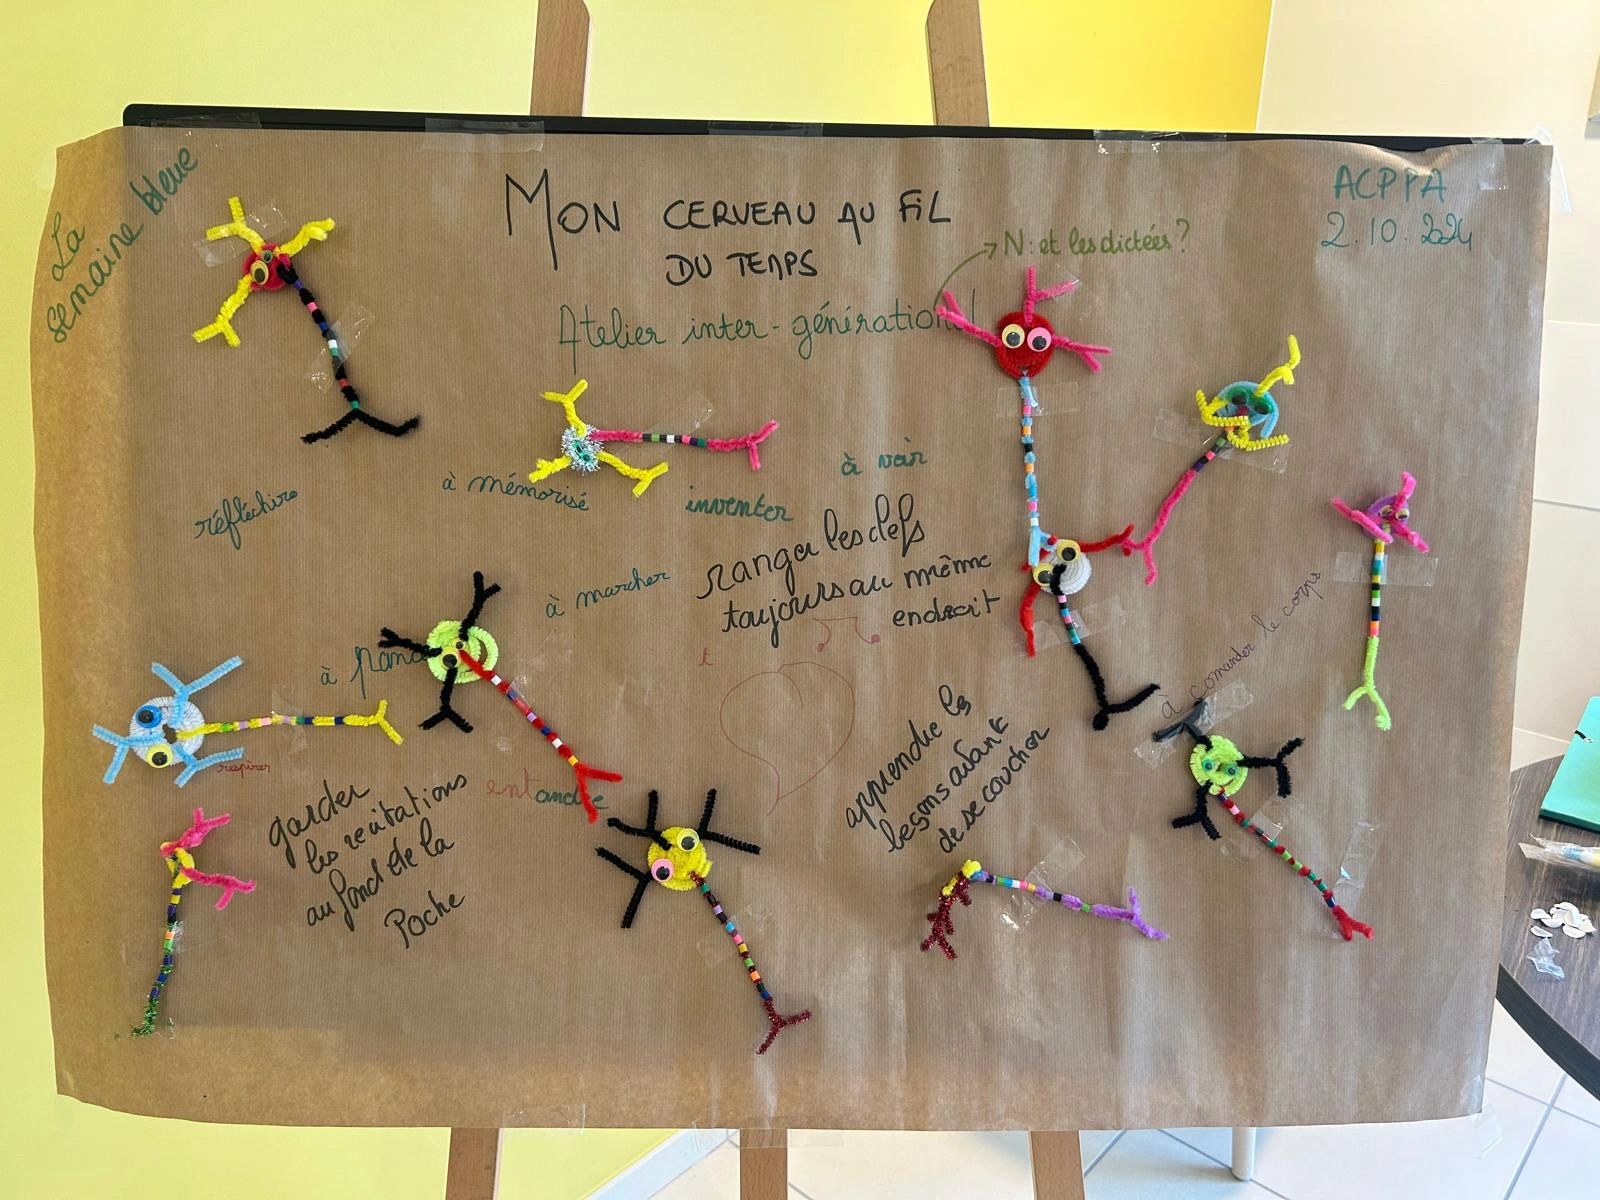 La
semaine bleue
MON CERVEAU AU FiL
DU TEMPS
ACPPA
2.10.2024
N: et les dictées ?
Atelier inter-générationnel
à voir
à mémorisé
inventer
réfléchire
ranger les clefs
toujours au même
endroit
à marcher
à comander le corps
à
t
respirer
entandre
garder
les recitations
au fond de la
Poche
apprendre les
leçons avant
de se coucher